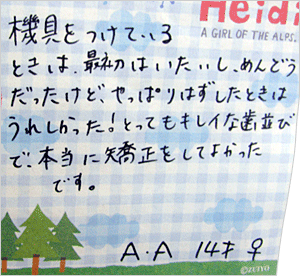 Heidi
A GIRL OF THE ALPS.
機具をつけている
ときは、最初はいたいし、めんどう
だったけど、やっぱりはずしたときは
うれしかった!とってもキレイな歯並び
で、本当に矯正をしてよかった
です。
A・A 14才 ♀
©ZUIYO